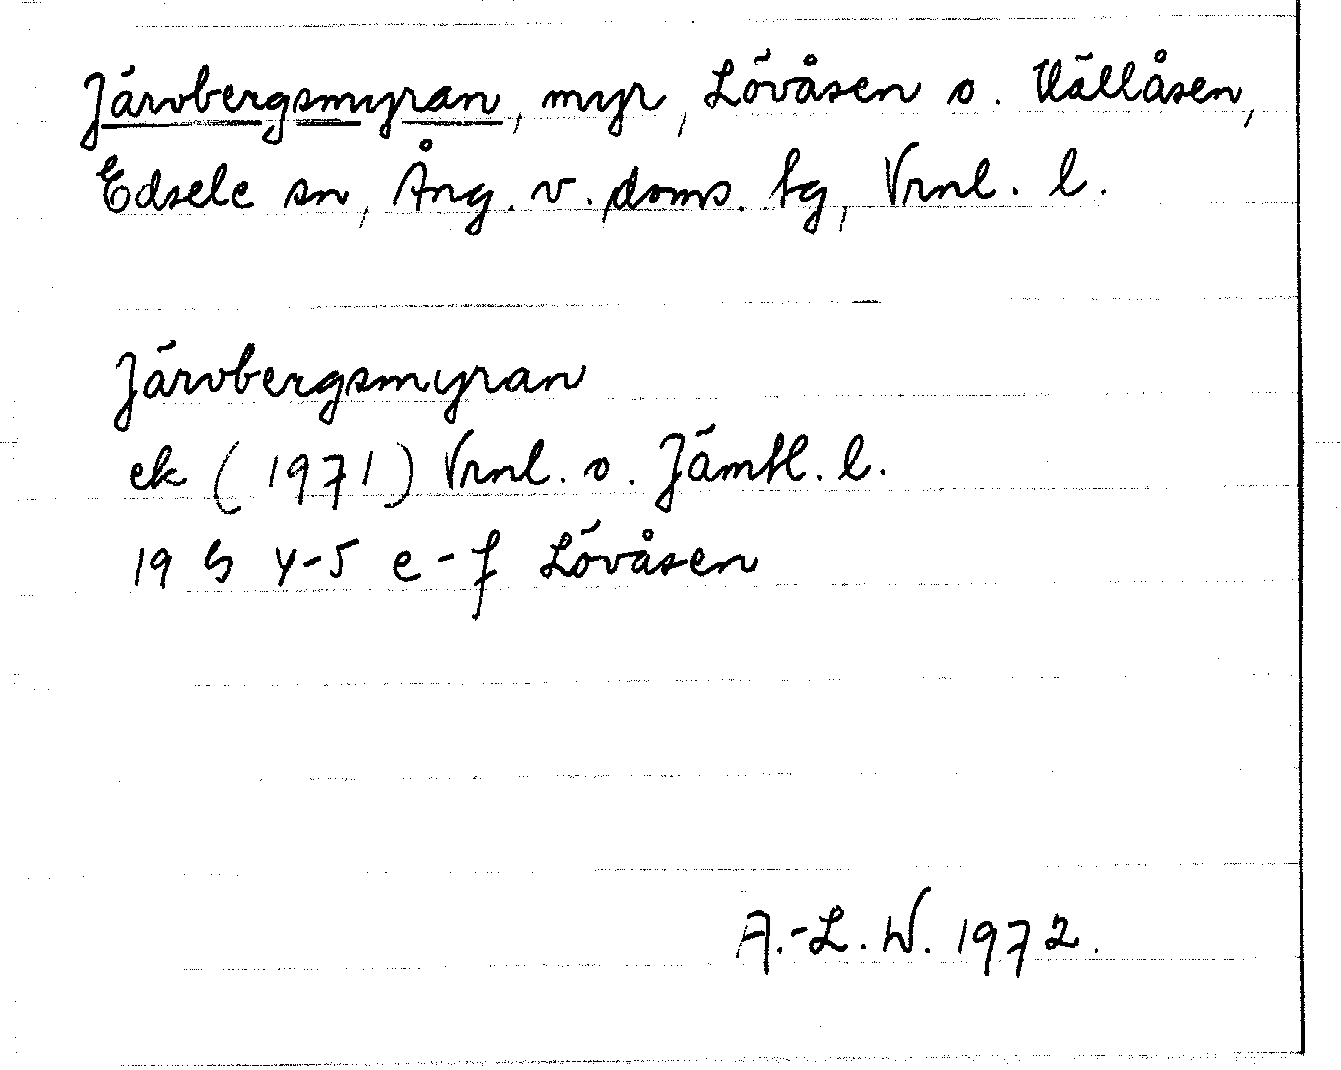 Järvbergsmyran, myr, Lövåsen o. Vällåsen,
Edsele sn, Ång. v. doms. tg, Vrnl. l.
Järvbergsmyran
ek (1971) Vrnl. o. Jämtl. l.
19 G 4-5 e-f Lövåsen
A.-L. W. 1972.